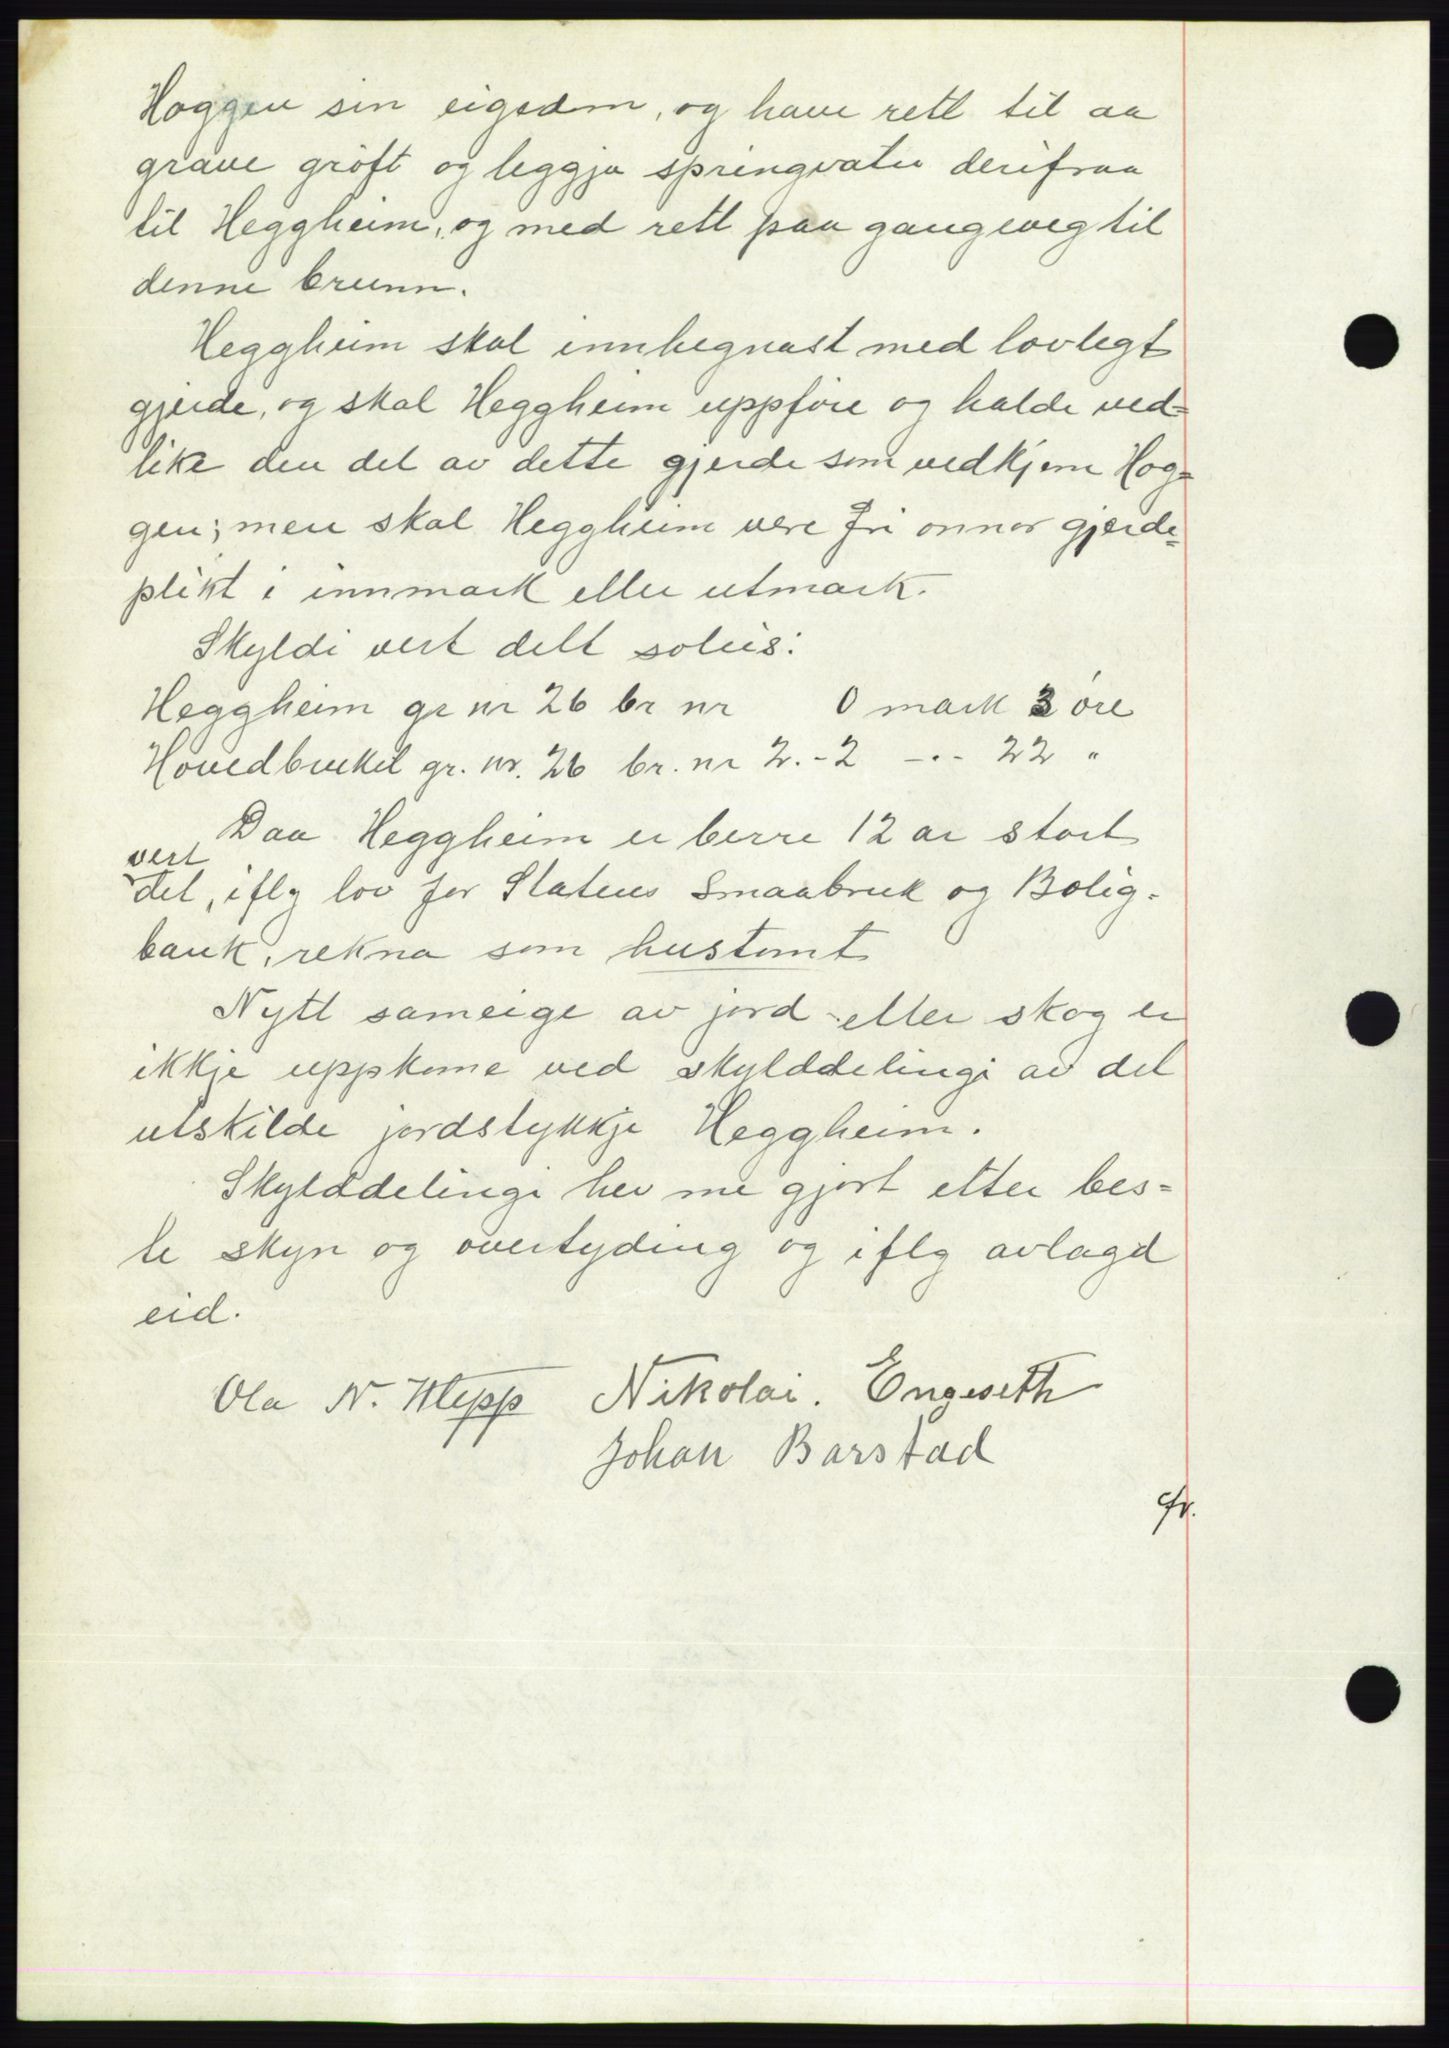 Hoggen sin eigedom, og have rett til aa
grave grøft og leggja springvatn derifraa
til Heggheim, og med rett paa gangeveg til
denne brunn.
Heggheim skal innhegnast med lovlegt
gjerde, og skal Heggheim uppføre og halde ved=
like den del av dette gjerde som vedkjem Hog=
gen; men skal Heggheim vere fri onnor gjerde=
plikt i innmark eller utmark.
Skyldi vert delt soleis:
Heggheim gr nr 26 br nr 0 mark 3 øre
Hovedbruket gr. nr. 26 br. nr 2. - 2 -.- 22 "
Daa Heggheim er berre 12 ar stort
vert
det, iflg lov for Statens Smaabruk og Bolig=
bank, rekna som hustomt
Nytt sameige av jord eller skog er
ikkje uppkome ved skylddelingi av det
utskilde jordstykkje Heggheim.
Skylddelingi hev me gjort etter bes=
te skyn og overtyding og iflg avlagd
eid.
Ola N. Klepp Nikolai. Engeseth
Johan Barstad
fr.